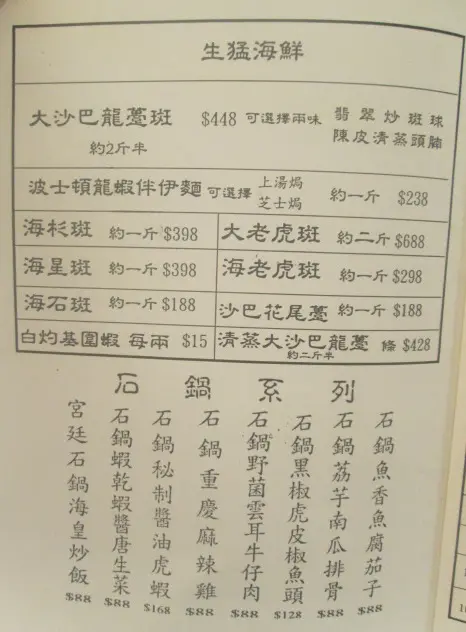 生猛海鮮
大沙巴龍躉斑 $448 可選擇兩味 翡翠炒斑球
約2斤半 陳皮清蒸頭腩
波士頓龍蝦伴伊麵 可選擇 上湯焗 約一斤 $238
芝士焗
海杉斑 約一斤 $398 大老虎斑 約二斤 $688
海星斑 約一斤 $398 海老虎斑 約一斤 $298
海石斑 約一斤 $188 沙巴花尾躉 約一斤 $188
白灼基圍蝦 每兩 $15 清蒸大沙巴龍躉 條 $428
約二斤半
石鍋系列
石鍋魚香魚腐茄子 $88
石鍋荔芋南瓜排骨 $88
石鍋黑椒虎皮椒魚頭 $128
石鍋野菌雲耳牛仔肉 $88
石鍋重慶麻辣雞 $88
石鍋秘制醬油虎蝦 $168
石鍋蝦乾蝦醬唐生菜 $88
宮廷石鍋海皇炒飯 $88